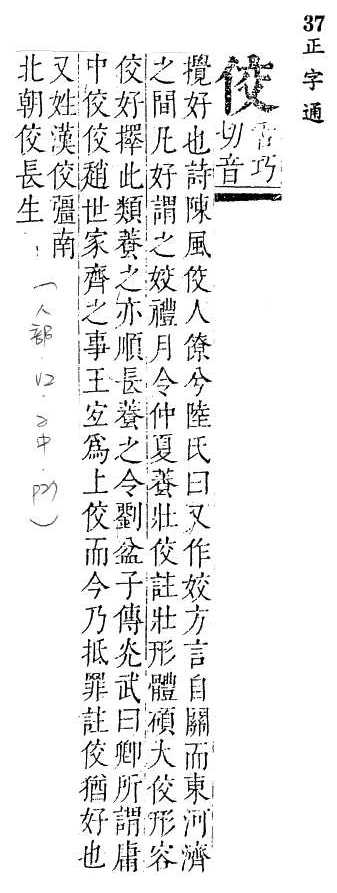 37正字通
佼
古巧切音
攪好也詩陳風佼人僚兮陸氏曰又作姣方言自關而東河濟
之間凡好謂之姣禮月令仲夏養壯佼註壯形體碩大佼形容
佼好擇此類養之亦順長養之令劉盆子傳光武曰卿所謂庸
中佼佼趙世家齊之事王宐為上佼而今乃抵罪註佼猶好也
又姓漢佼彊南
北朝佼長生
(人部 V2.2中.p29)